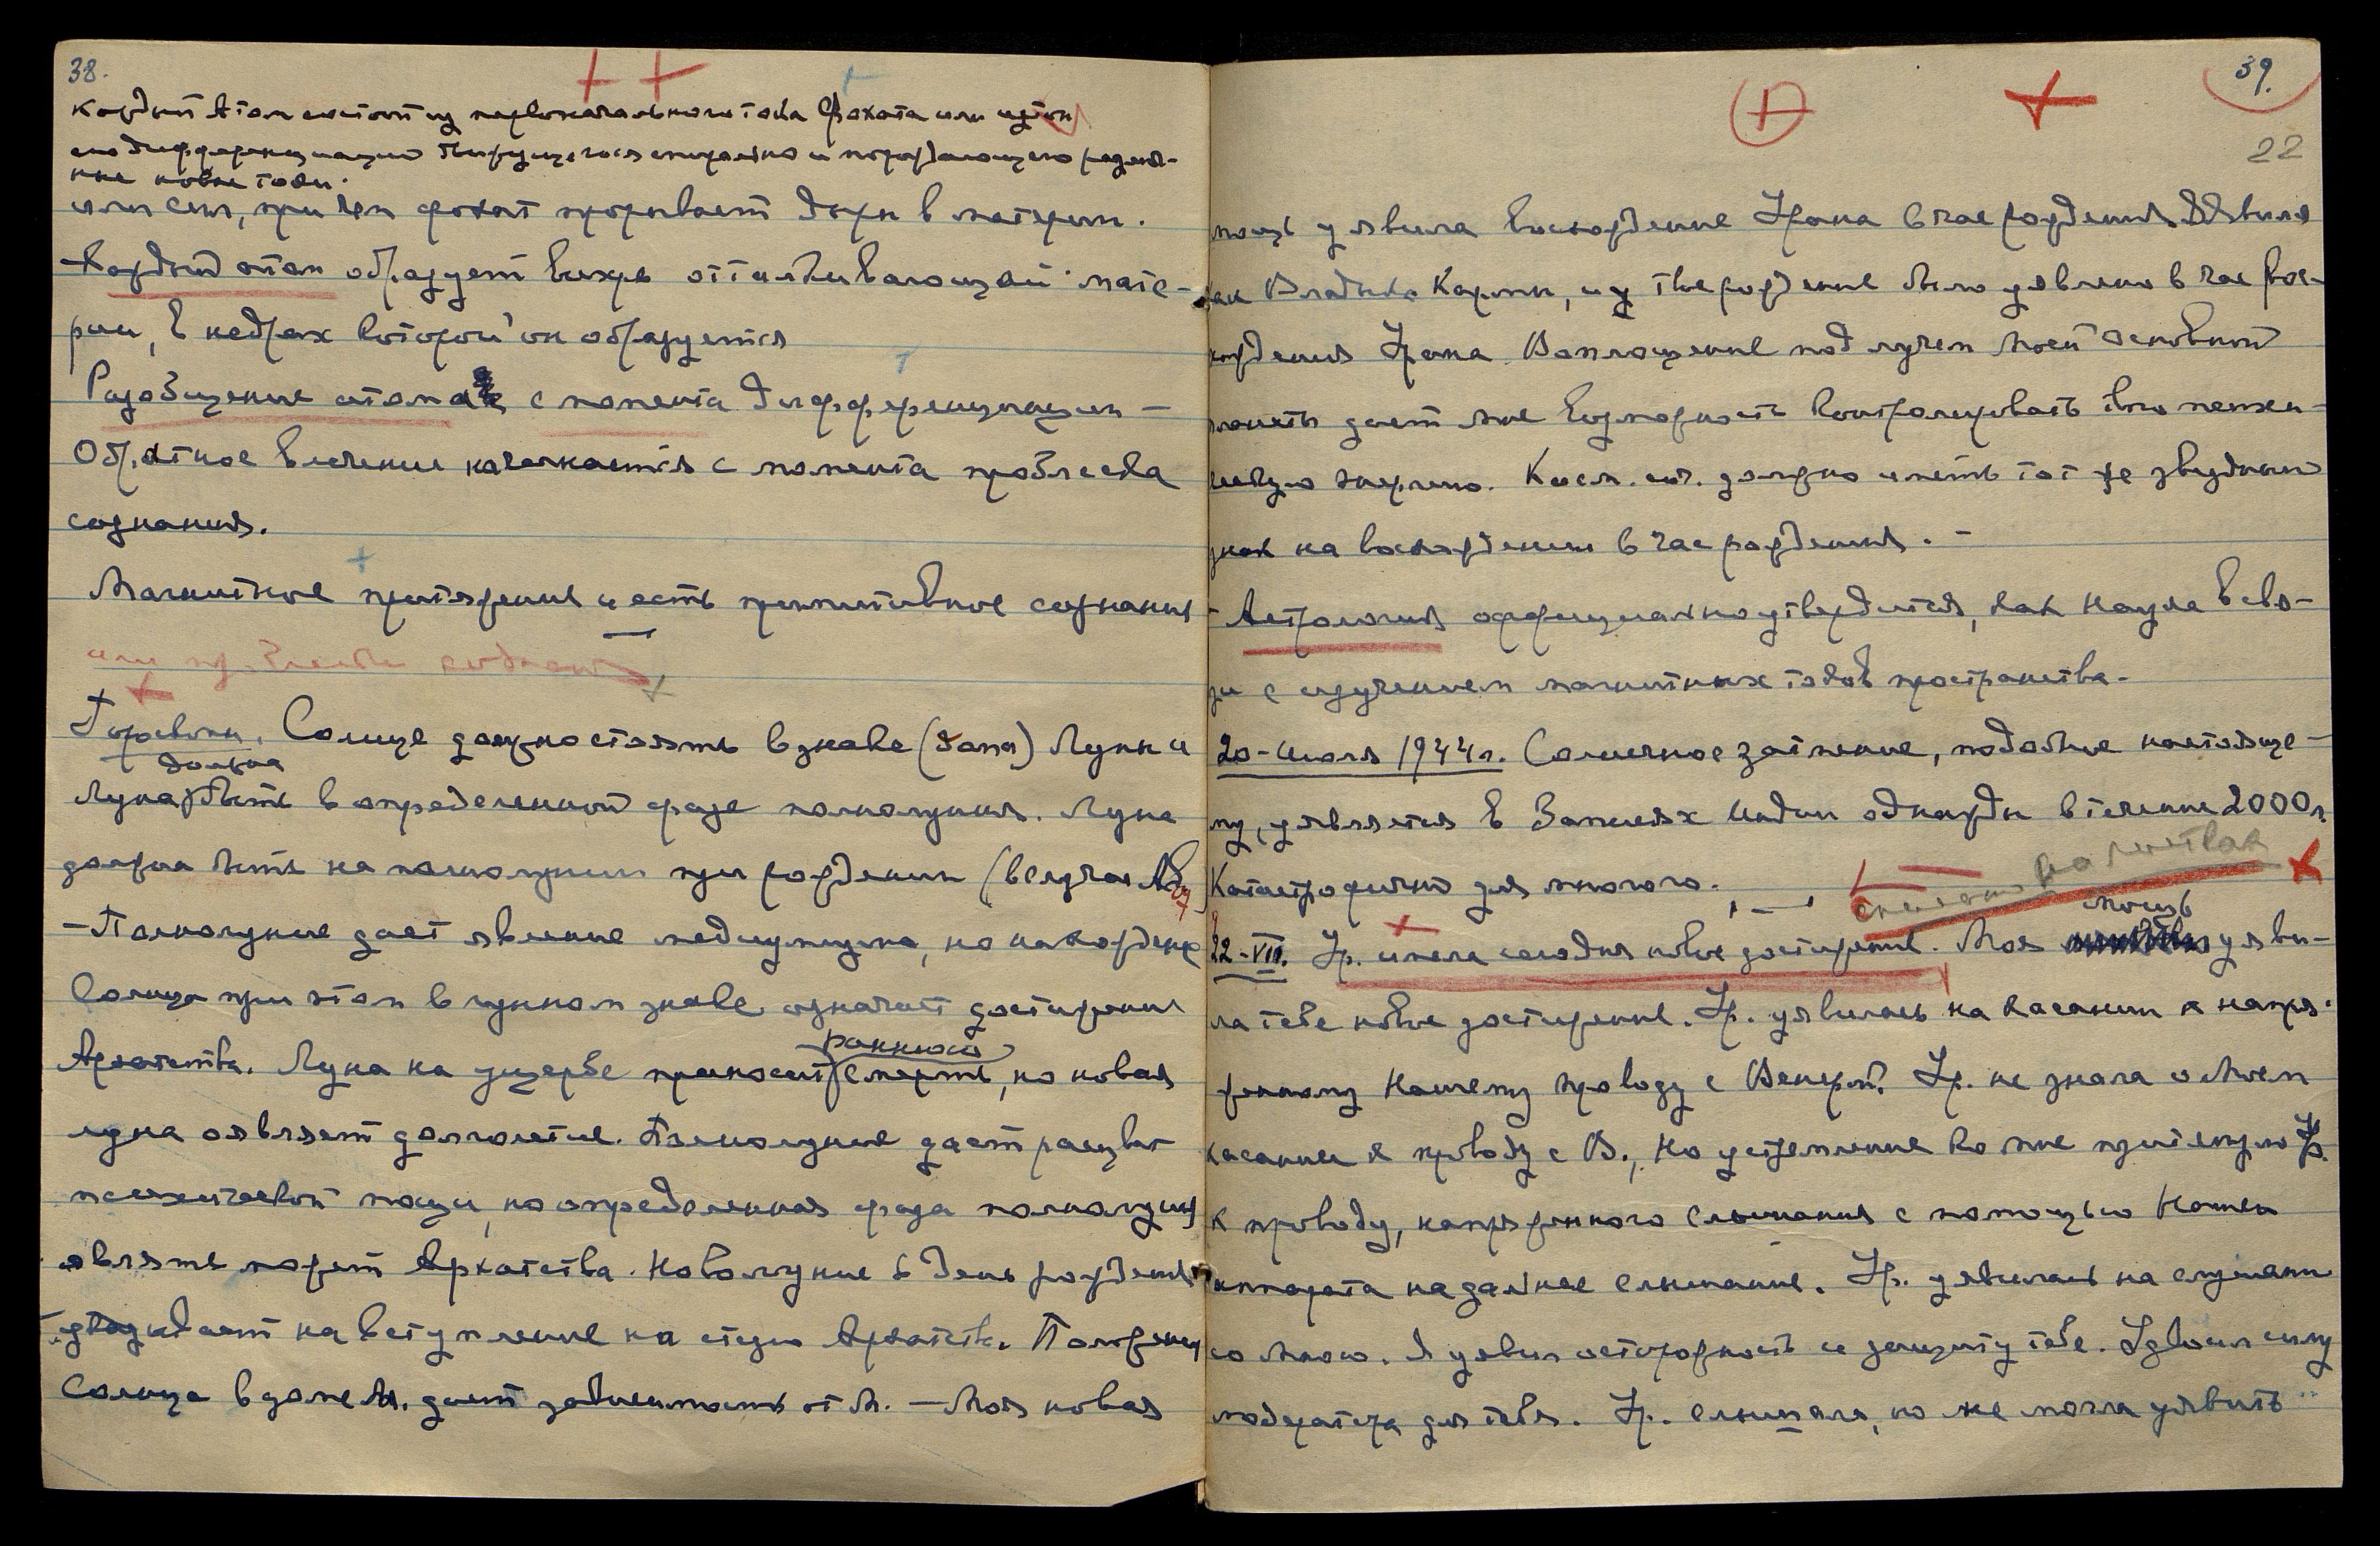 38.
Каждый Атом состоит из первоначального тока Фохата или
дифференциацию спирально и порождающего различ-
ные новые токи.
или сил, при чем фохат прорывает дыры в материи.
-Каждый атом образует вихрь отталкивающий мате-
рии, в недрах которой он образуется
Разобщение атома с момента дифференциации -
Обратное влечение начинается с момента проблеска
сознания.
Магнитное притяжение и есть примитивное сознание
или проблески сознания
Гороскопы. Солнце должно стоять в знаке (дома) Луны и
должна
Луна быть в определенной фазе полнолуния. Луна
должна быть на полнолунии при рождении (в случае
-Полнолуние дает явление медиумизма, но нахождение
Солнца при этом в лунном знаке означает достижения
раннюю
Архатства. Луна на ущербе приносит смерть, но новая
луна являет долголетие. Полнолуние дает расцвет
психической мощи, но определенная фаза полнолуния
являть может Архатства. Новолуние в день рождения
указует на вступление на стезю Архатства. Положение
Солнца в доме М. дает зависимость от М. - Моя новая
39.
22
мощь уявила восхождение Урана в час рождения. Я явился
как Владыка Кармы, и твое рождение было уявлено в час вос-
хождения Урана. Воплощение под лучем Моей основной
планеты дает мне возможность контролировать твою психи-
ческую энергию. Косм. сот. должно иметь тот же звездный
знак на восхождении в час рождения. -
-Астрология официально утвердится, как наука в свя-
зи с изучением магнитных токов пространства.
20-Июля 1944 г. Солнечное затмение, подобное настояще-
му, уявляется в Записях Индии однажды в течение 2000 л.
Катастрофично для многого.
22-VII. Ур. имела сегодня новое достижение. Моя мощь уяви-
ла тебе новое достижение. Ур. уявилась на касании к напря-
женному Нашему проводу с Венерой. Ур. не знала о Моем
касании к проводу с В., но устремление ко мне притянуло Ур.
к проводу, напряженного слышания с помощью Нашего
аппарата на дальнее слышание. Ур. уявилась на слушании
со Мною. Я уявил осторожность и защиту тебе. Удвоил силу
модератора для тебя. Ур. слышала, но не могла уявить